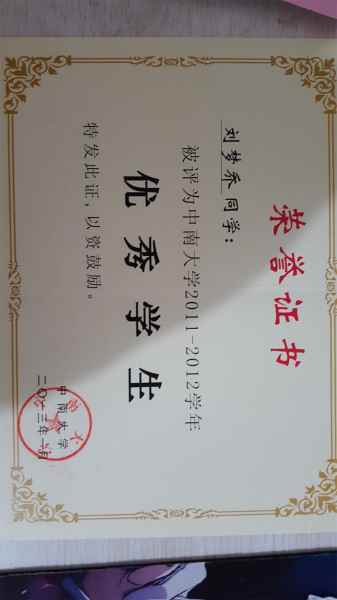 荣誉证书
刘梦乔同学：
被评为中南大学2011-2012学年
优秀学生
特发此证，以资鼓励。
中南大学
二〇一三年一月